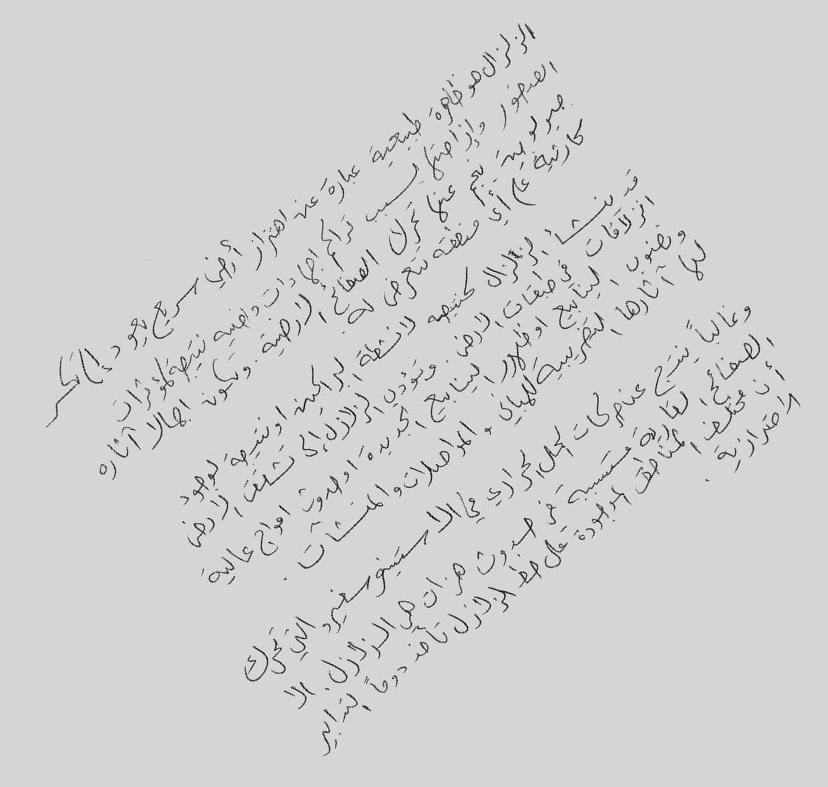 الزلزال هو ظاهرة طبيعية عبارة عن اهتزاز أرضي سريع يعود إلى تكسر
الصخور وإزاحتها بسبب تراكم اجهادات داخلية نتيجة لمؤثرات
جيولوجية ينجم عنها تحرك الصفائح الأرضية وتكون اجمالا آثاره
كارثية على أي منطقة تتعرض له.
قد ينشأ الزلزال كنتيجة لانشطة البراكين او نتيجة لوجود
انزلاقات في طبقات الارض. وتؤدي الزلازل إلى تشقق الارض
ونضوب الينابيع او ظهور الينابيع الجديدة او حدوث امواج عالية
لها آثارها التخريبية للمباني و المواصلات والمنشآت.
وغالباً ينتج عن حركات الحمل الحراري في الاستينوسفير التي تحرك
الصفائح القارية متسببة في حدوث هزات هي الزلازل. الا
أن مختلف المناطق الموجودة على خط الزلازل تأخذ دوماً التدابير
الاحترازية.